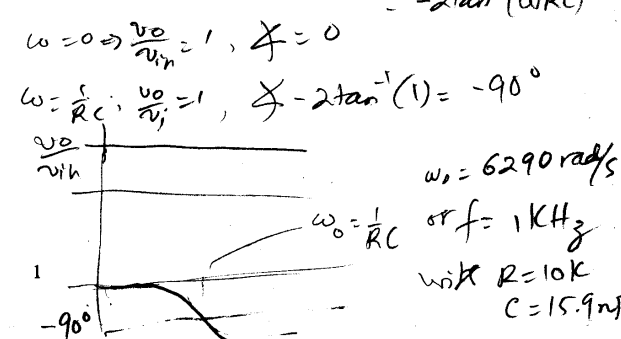 -2tan (WRC)
ω = 0 ⇒ vo/vin = 1, ∡ = 0
ω = 1/RC, vo/vi = 1, ∡ -2tan⁻¹(1) = -90°
vo/vin
ω₀ = 6290 rad/s
ω₀ = 1/RC or f = 1KHz
1 with R = 10K
C = 15.9nf
-90°